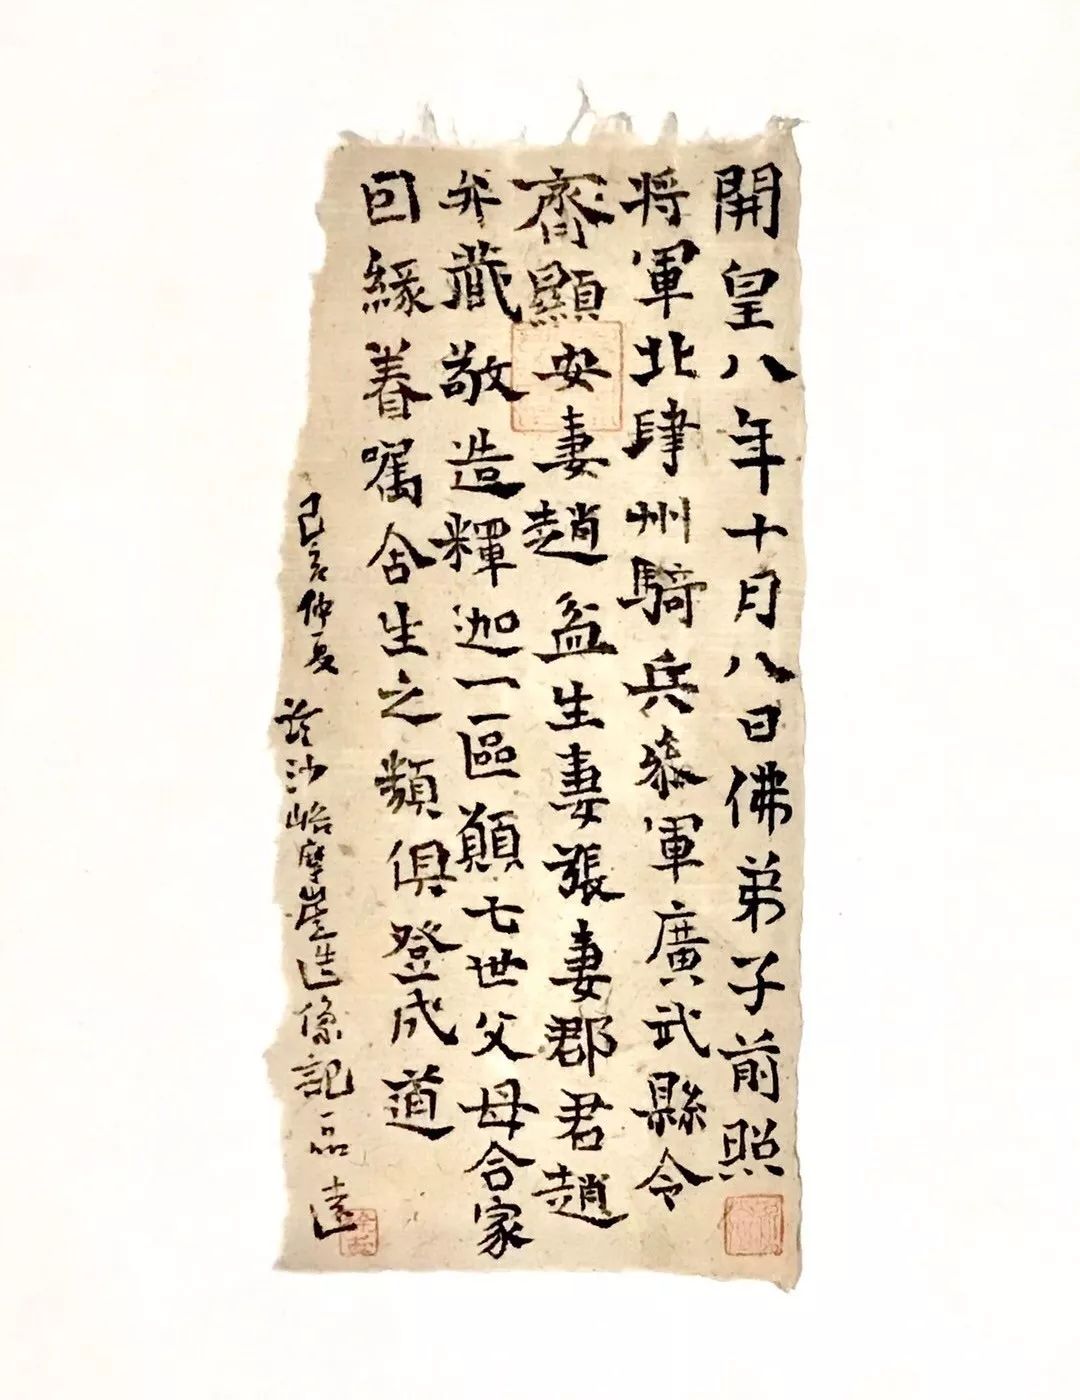 開皇八年十月八日佛弟子前照
將軍北肆州騎兵叅軍廣武縣令
齊顯安妻趙盆生妻張妻郡君趙
弁藏敬造釋迦一區願七世父母合家
回緣眷囑含生之類俱登成道
己亥仲夏 沙峪摩崖造像記一品 遠